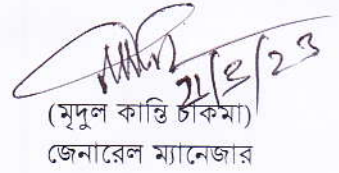 21/8/23
(মৃদুল কান্তি চাকমা)
জেনারেল ম্যানেজার